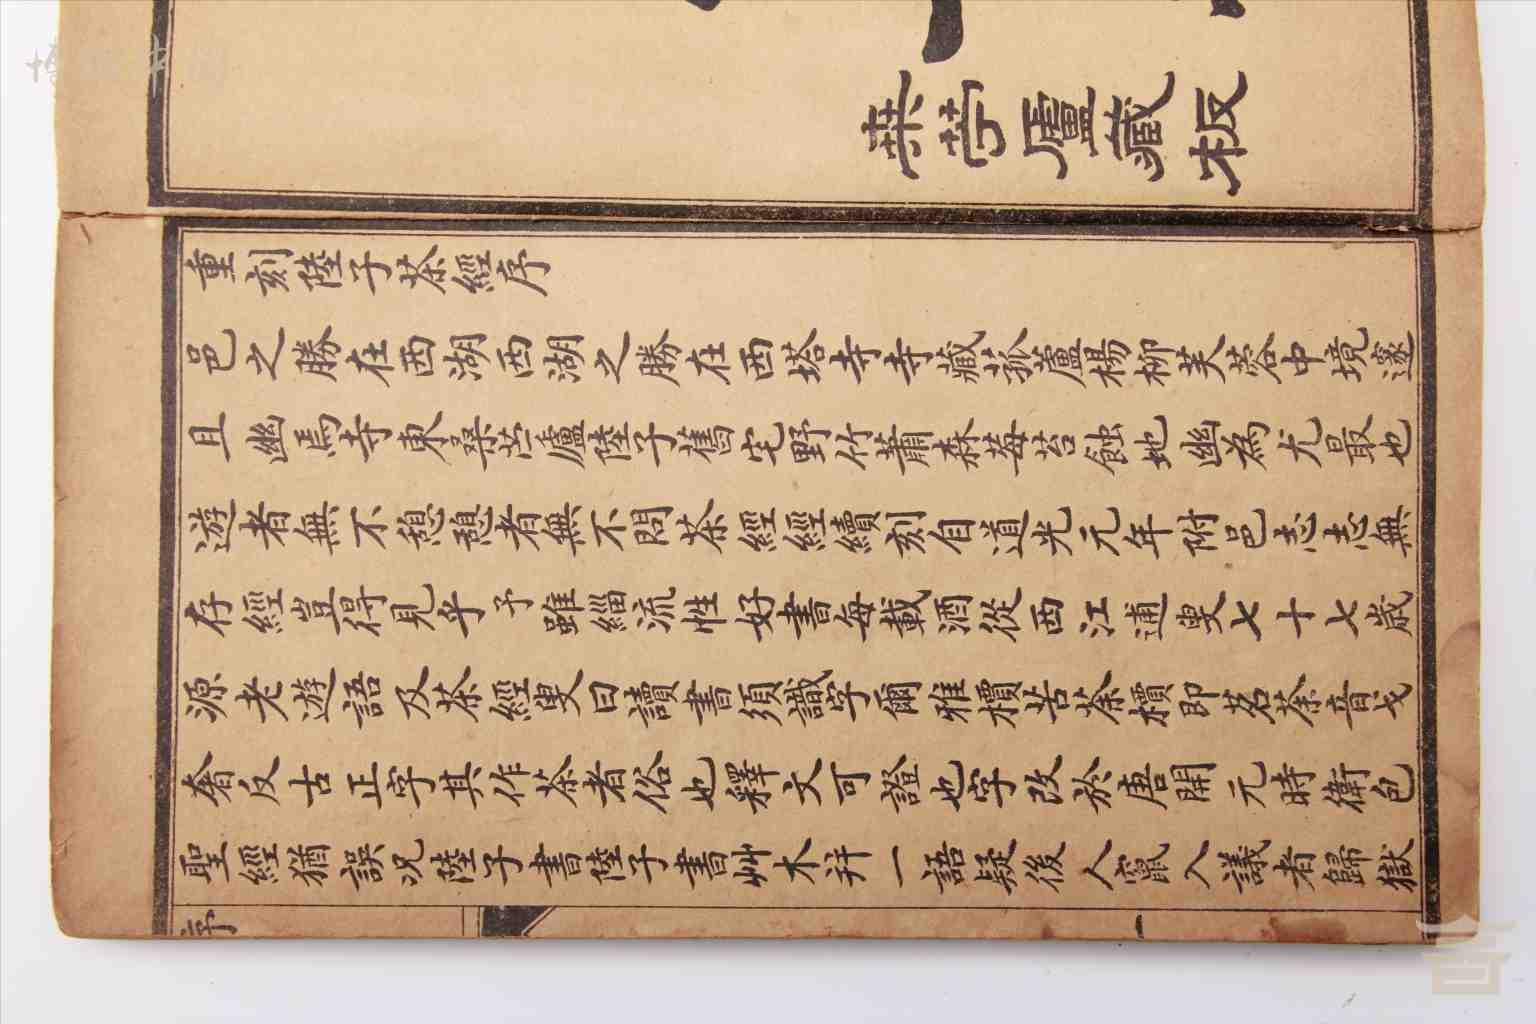 桑苧廬藏板
重刻陸子茶經序
邑之勝在西湖西湖之勝在西塔寺寺藏菰蘆楊柳芙蓉中境邃
且幽焉寺東桑苧廬陸子舊宅野竹蕭森莓苔蝕地幽為尤最也
遊者無不憩憩者無不問茶經經續刻自道光元年附邑志志無
存經豈得見乎予雖緇流性好書每載酒從西江逋叟七十七歲
源老遊語及茶經叟曰讀書須識字爾雅檟苦荼檟即茗荼音戈
奢反古正字其作茶者俗也釋文可證也字改於唐開元時衛包
聖經猶誤況陸子書陸子書艸木并一語疑後人竄入議者歸獄
序
一